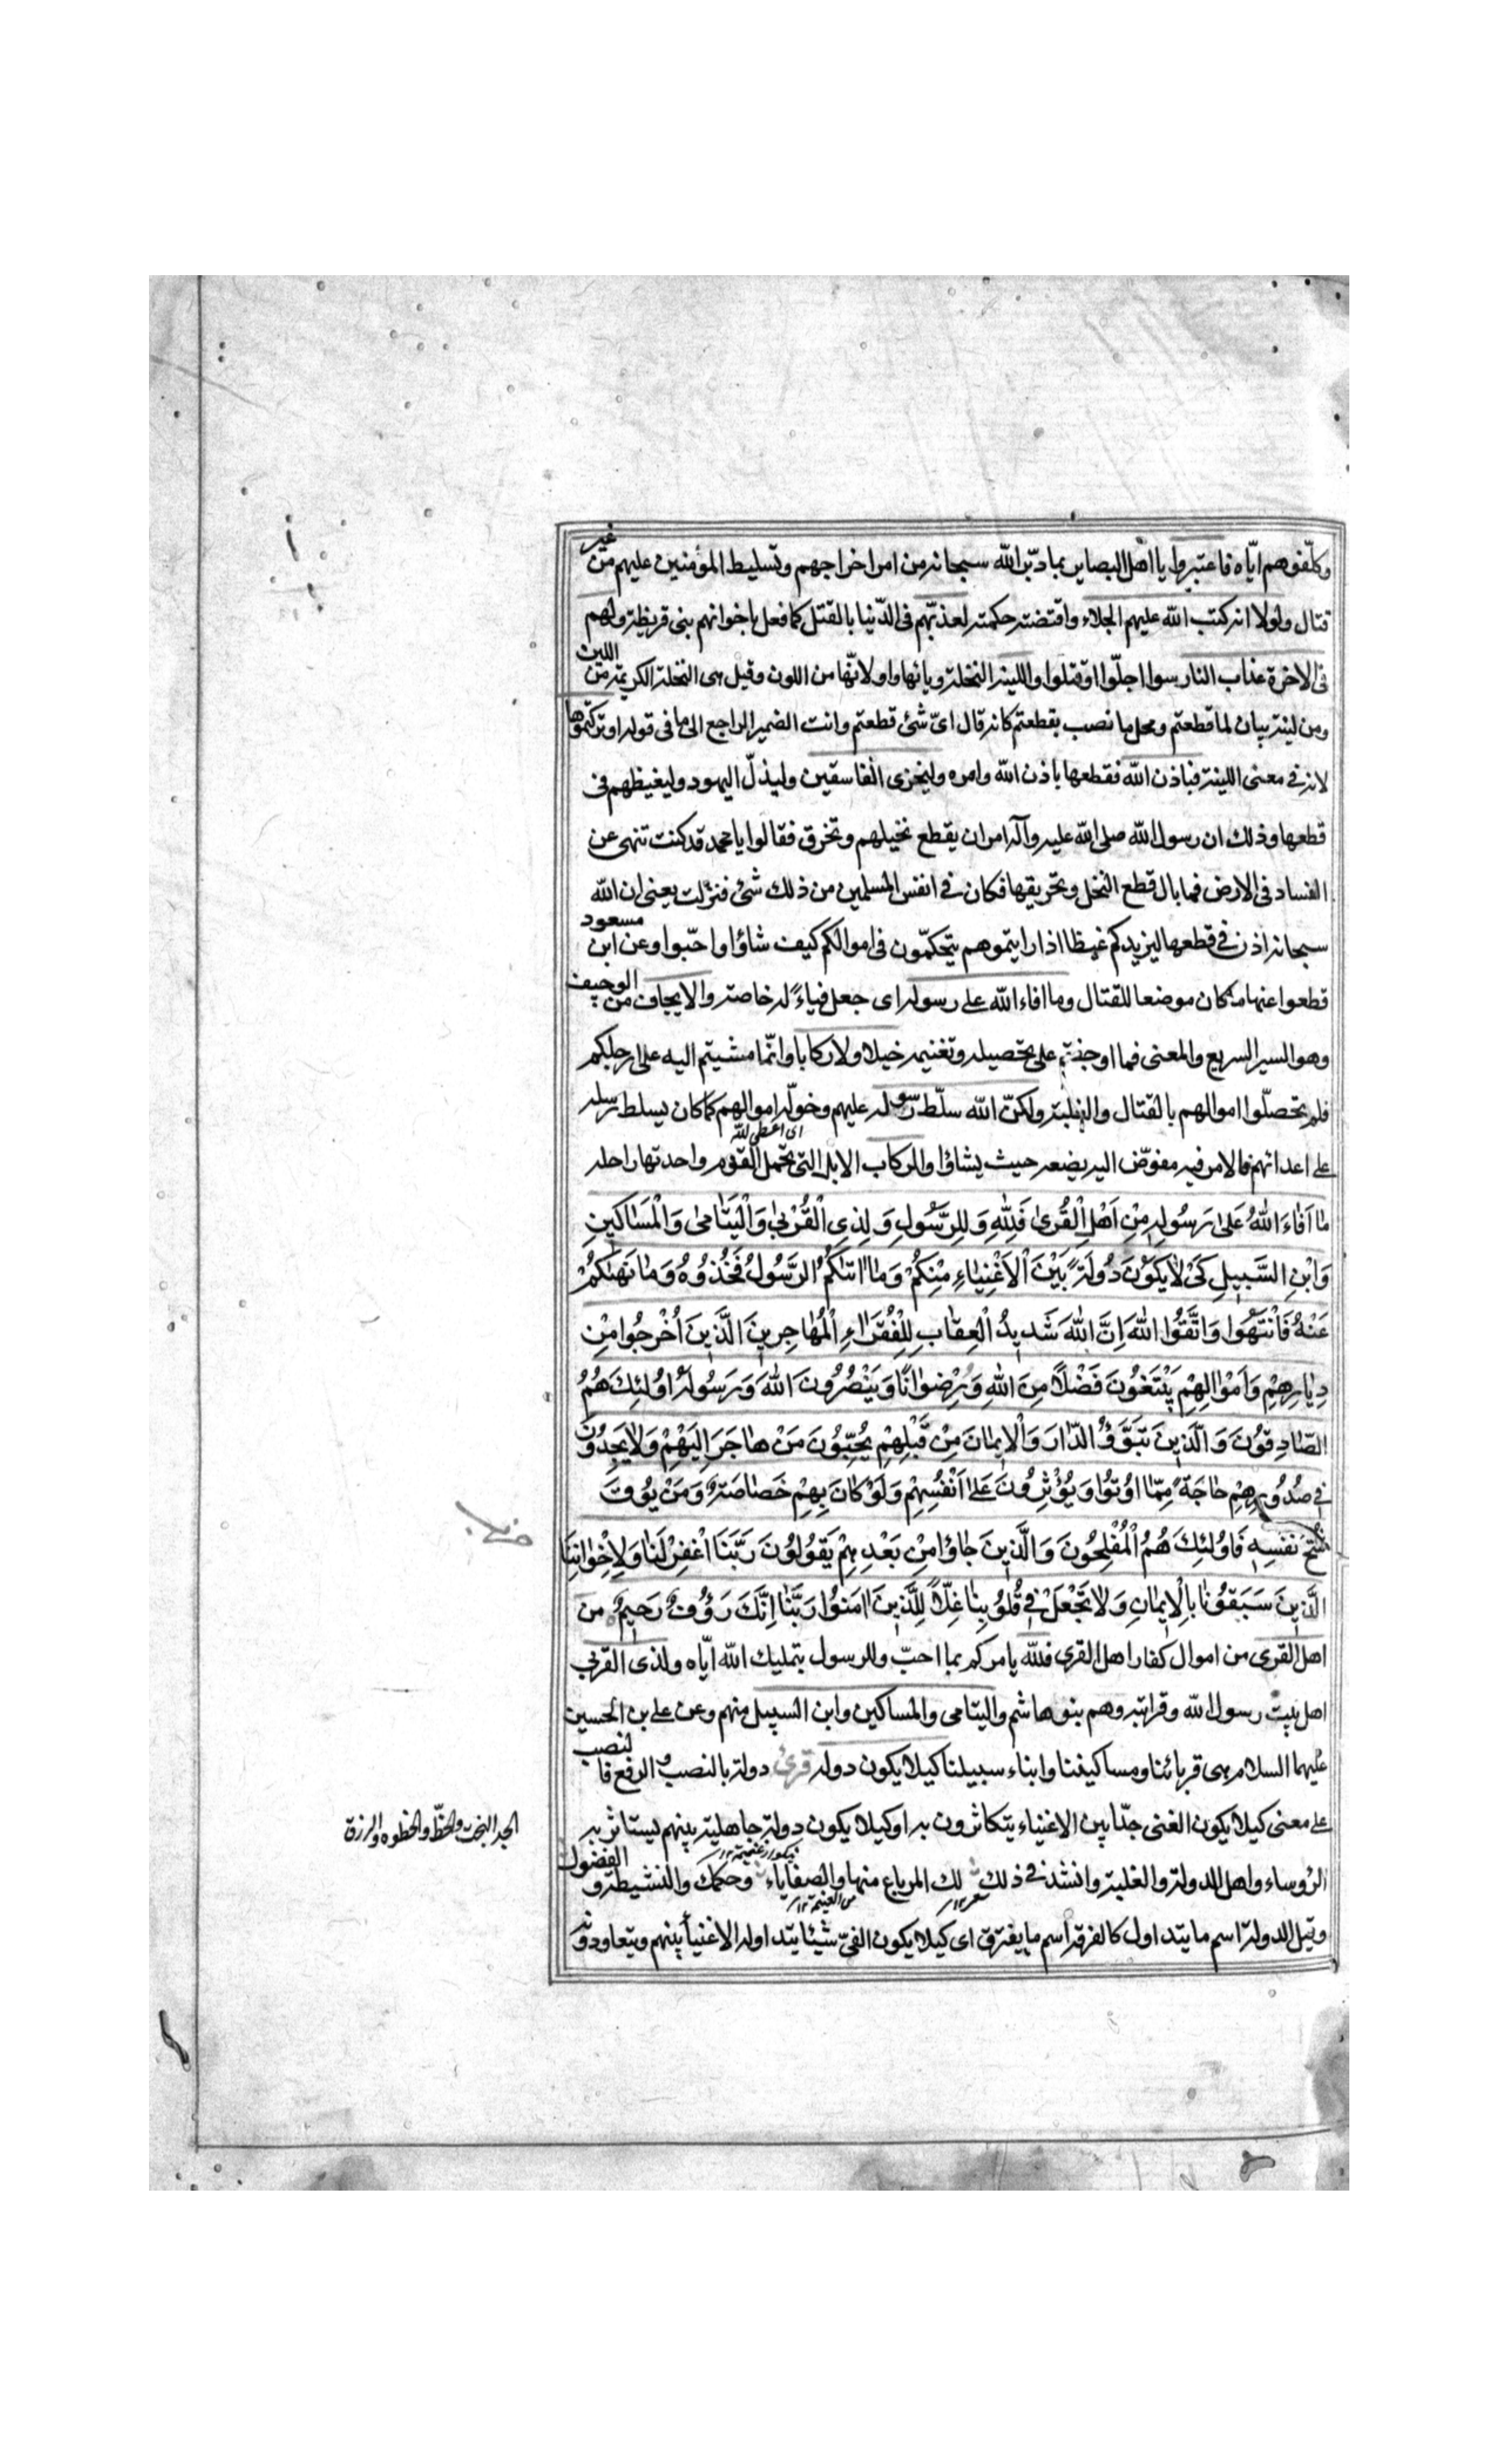 وكلّفوهم ايّاه فاعتبروا يا اهل البصاير بما دبّر الله سبحانه من امر اخراجهم وتسليط المؤمنين عليهم من غير
قتال ولولا انه كتب الله عليهم الجلاء واقتضته حكمته لعذبّهم فى الدّنيا بالقتل كما فعل باخوانهم بنى قريظة ولهم
فى الاخرة عذاب النار سوا اجلّوا اوقتلوا واللينة النخلة وياٰئها واو لانّها من اللون وقيل هى النخلة الكريمة من اللين
ومن لينة بيان لما قطعتم ومحل ما نصب بقطعتم كانه قال اىّ شئ قطعتم وانث الضمير الراجع الى ما فى قوله او تركتموها
لانه فى معنى اللينة فباذن الله فقطعها باذن الله وامره وليخزى الفاسقين وليذلّ اليهود وليغيظهم فى
قطعها وذلك ان رسول الله صلى الله عليه وآله امر ان يقطع نخيلهم وتحرق فقالوا يا محمد قد كنت تنهى عن
الفساد فى الارض فما بال قطع النخل وتحريقها فكان فى انفس المسلمين من ذلك شئ فنزلت يعنى ان الله
سبحانه اذن فى قطعها ليزيدكم غيظا اذا رايتموهم يتحكمّون فى اموالكم كيف شاؤا واحبّوا وعن ابن مسعود
قطعوا عنها ما كان موضعا للقتال وما افاء الله على رسوله اى جعل فياءً له خاصة والايجاف من الوجيف
وهو السير السريع والمعنى فما اوجفتم على تحصيله وتغنيمه خيلا ولا ركابا وانّما مشيتم اليه على ارجلكم
فلم تحصلّوا اموالهم بالقتال والغلبة ولكنّ الله سلّط رسوله عليهم وخوّله اموالهم كما كان يسلط رسله
اى اعطى لله
على اعدائهم فالامر فيه مفوّض اليه يضعه حيث يشاؤا والركاب الابل التى تحمل القوم واحدتها راحلة
مٰا اَفٰاءَ اللهُ عَلىٰ رَسُولِهِ مِنْ اَهْلِ الْقُرىٰ فَلِلّٰهِ وَلِلرَّسُولِ وَلِذِى الْقُرْبىٰ وَالْيَتٰامىٰ وَالْمَسٰاكِينِ
وَابْنِ السَّبِيلِ كَىْ لاٰ يَكُونَ دُولَةً بَيْنَ الْاَغْنِيٰاءِ مِنْكُمْ وَمٰا اٰتٰكُمُ الرَّسُولُ فَخُذُوهُ وَمٰا نَهٰيكُمْ
عَنْهُ فَانْتَهُوا وَاتَّقُوا اللهَ اِنَّ اللهَ شَدِيدُ الْعِقٰابِ لِلْفُقَرٰاءِ الْمُهٰاجِرِينَ الَّذِينَ اُخْرِجُوا مِنْ
دِيٰارِهِمْ وَاَمْوٰالِهِمْ يَبْتَغُونَ فَضْلاً مِنَ اللهِ وَرِضْوٰانًا وَيَنْصُرُونَ اللهَ وَرَسُولَهُ اُولٰئِكَ هُمُ
الصّٰادِقُونَ وَالَّذِينَ تَبَوَّؤُ الدّٰارَ وَالْاِيمٰانَ مِنْ قَبْلِهِمْ يُحِبُّونَ مَنْ هٰاجَرَ اِلَيْهِمْ وَلاٰ يَجِدُونَ
فِى صُدُورِهِمْ حٰاجَةً مِمّٰا اُوتُوا وَيُؤْثِرُونَ عَلىٰ اَنْفُسِهِمْ وَلَوْ كٰانَ بِهِمْ خَصٰاصَةٌ وَمَنْ يُوقَ
شُحَّ نَفْسِهِ فَاُولٰئِكَ هُمُ الْمُفْلِحُونَ وَالَّذِينَ جٰاؤُا مِنْ بَعْدِهِمْ يَقُولُونَ رَبَّنَا اغْفِرْ لَنٰا وَلِاِخْوٰانِنَا
الَّذِينَ سَبَقُونٰا بِالْاِيمٰانِ وَلاٰ تَجْعَلْ فِى قُلُوبِنٰا غِلّاً لِلَّذِينَ اٰمَنُوا رَبَّنٰا اِنَّكَ رَؤُفٌ رَحِيمٌ من
اهل القرى من اموال كفار اهل القرى فلله يامركم بما احبّ وللرسول بتمليك الله ايّاه ولذى القربى
اهل بيت رسول الله وقرابته وهم بنو هاشم واليتامى والمساكين وابن السبيل منهم وعن على بن الحسين
عليهما السلام هى قربائنا ومساكيننا وابناء سبيلنا كيلا يكون دولة قرئ دولة بالنصب والرفع فالنصب
على معنى كيلا يكون الفىّ جدّا بين الاغنياء يتكاثرون به او كيلا يكون دولة جاهلية بينهم يستاثر به
الجد البخت والحظّ والحظوة والرزق
الرؤساء واهل الدولة والغلبة وانشد فى ذلك لك المرباع منها والصفاياء وحكمك والنشيطة والفضول
من الغنيمة ١٢
وقيل الدولة اسم ما يتداول كالغرفة اسم ما يغترق اى كيلا يكون الفىّ شيئا يتداوله الاغنيأ بينهم ويتعاودونه